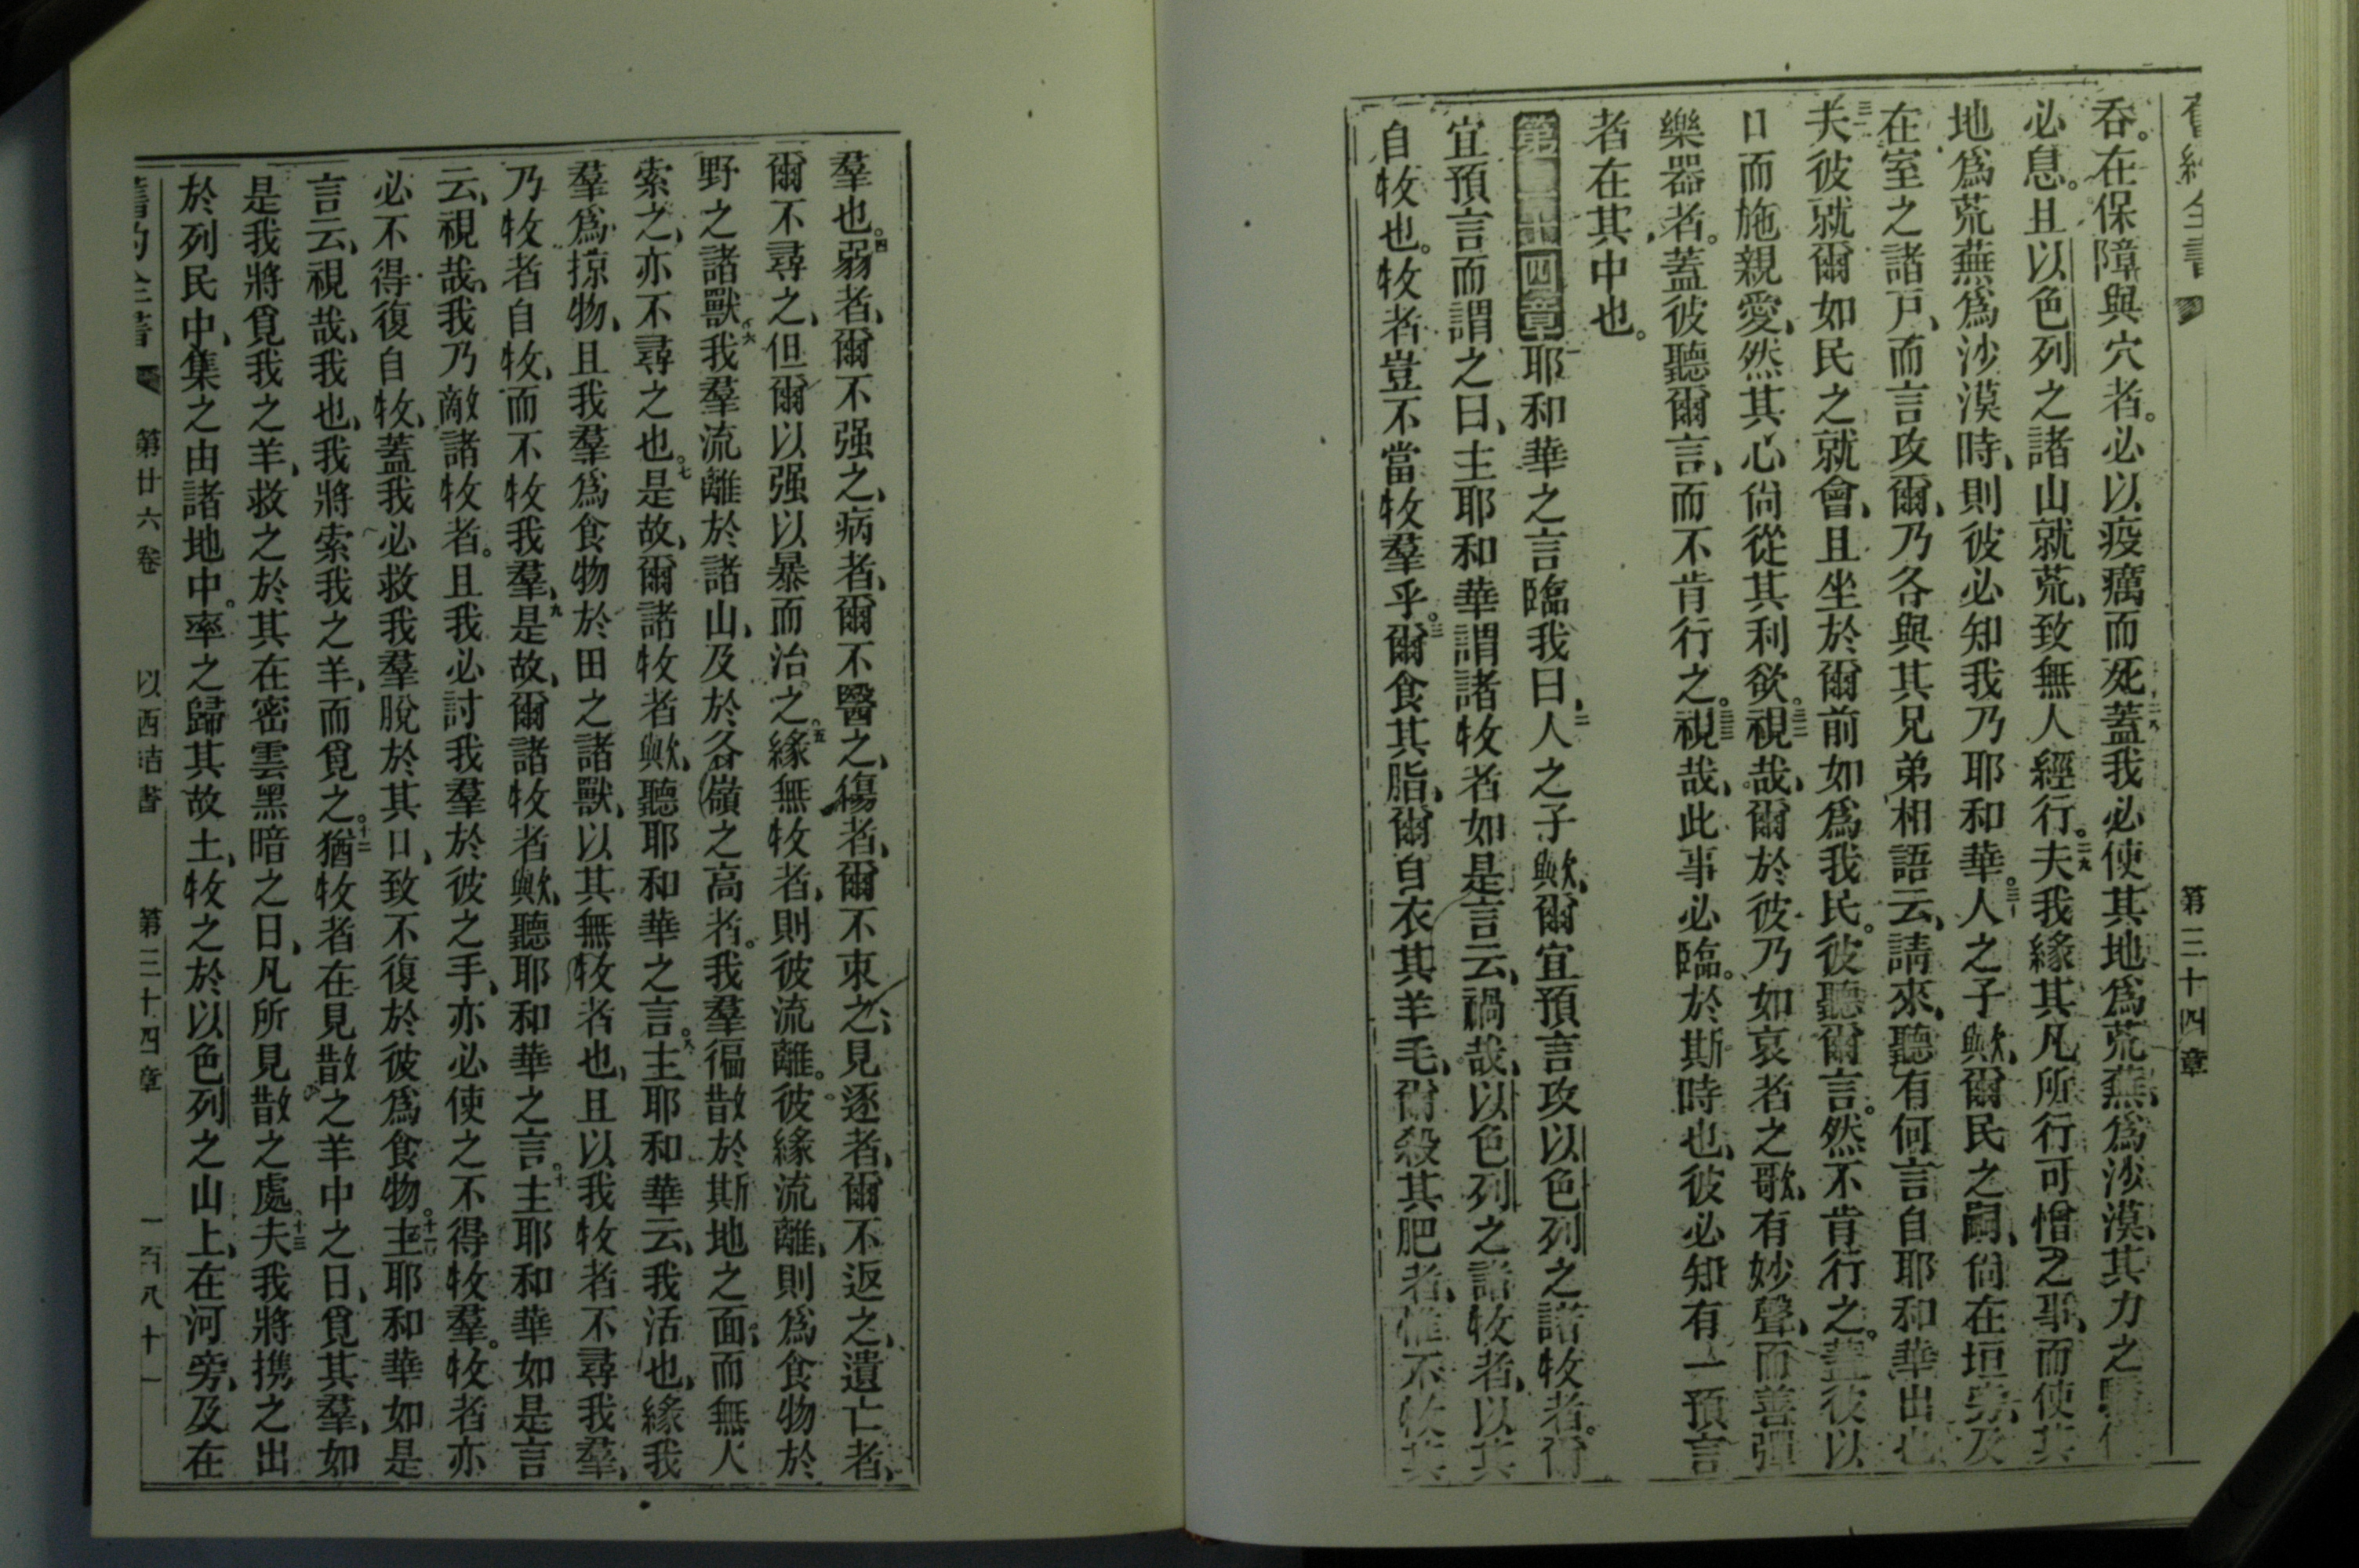 全書
第三十四章
吞。在保障與穴者。必以疫癘而死。二八蓋我必使其地爲荒蕪、爲沙漠、其力之驕
必息。且以色列之諸山就荒、致無人經行。二九夫我緣其凡所行可憎之事、而使其
地爲荒蕪爲沙漠時、則彼必知我乃耶和華。三十人之子歟、爾民之嗣、尙在垣旁、及
在室之諸戶、而言攻爾、乃各與其兄弟相語云、請來、聽有何言自耶和華出也
三一夫彼就爾如民之就會、且坐於爾前如爲我民。彼聽爾言。然不肯行之。蓋彼以
口而施親愛、然其心尙從其利欲。三二視哉、爾於彼乃如哀者之歌、有妙聲、而善彈
樂器者。蓋彼聽爾言、而不肯行之。三三視哉、此事必臨。於斯時也、彼必知有一預言
者在其中也。
第三十四章一耶和華之言臨我曰、二人之子歟、爾宜預言攻以色列之諸牧者。爾
宜預言而謂之曰、主耶和華謂諸牧者如是言云、禍哉、以色列之諸牧者、以其
自牧也。牧者豈不當牧羣乎。三爾食其脂、爾自衣其羊毛、爾殺其肥者、惟不牧其
羣也。四弱者、爾不强之、病者、爾不醫之、傷者、爾不束之、見逐者、爾不返之、遺亡者、
爾不尋之、但爾以强以暴而治之。五緣無牧者、則彼流離。彼緣流離、則爲食物於
野之諸獸。六我羣流離於諸山、及於各嶺之高者。我羣徧散於斯地之面、而無人
索之、亦不尋之也。七是故、爾諸牧者歟、聽耶和華之言。八主耶和華云、我活也、緣我
羣爲掠物、且我羣爲食物於田之諸獸、以其無牧者也、且以我牧者不尋我羣、
乃牧者自牧、而不牧我羣、九是故、爾諸牧者歟、聽耶和華之言。十主耶和華如是言
云、視哉、我乃敵諸牧者。且我必討我羣於彼之手、亦必使之不得牧羣。牧者亦
必不得復自牧、蓋我必救我羣脫於其口、致不復於彼爲食物。十一主耶和華如是
言云、視哉、我也、我將索我之羊、而覓之。十二猶牧者在見散之羊中之日、覓其羣、如
是我將覓我之羊、救之於其在密雲黑暗之日、凡所見散之處。十三夫我將携之出
於列民中、集之由諸地中。率之歸其故土、牧之於以色列之山上、在河旁、及在
舊約全書 第廿六卷 以西結書 第三十四章 一百八十一